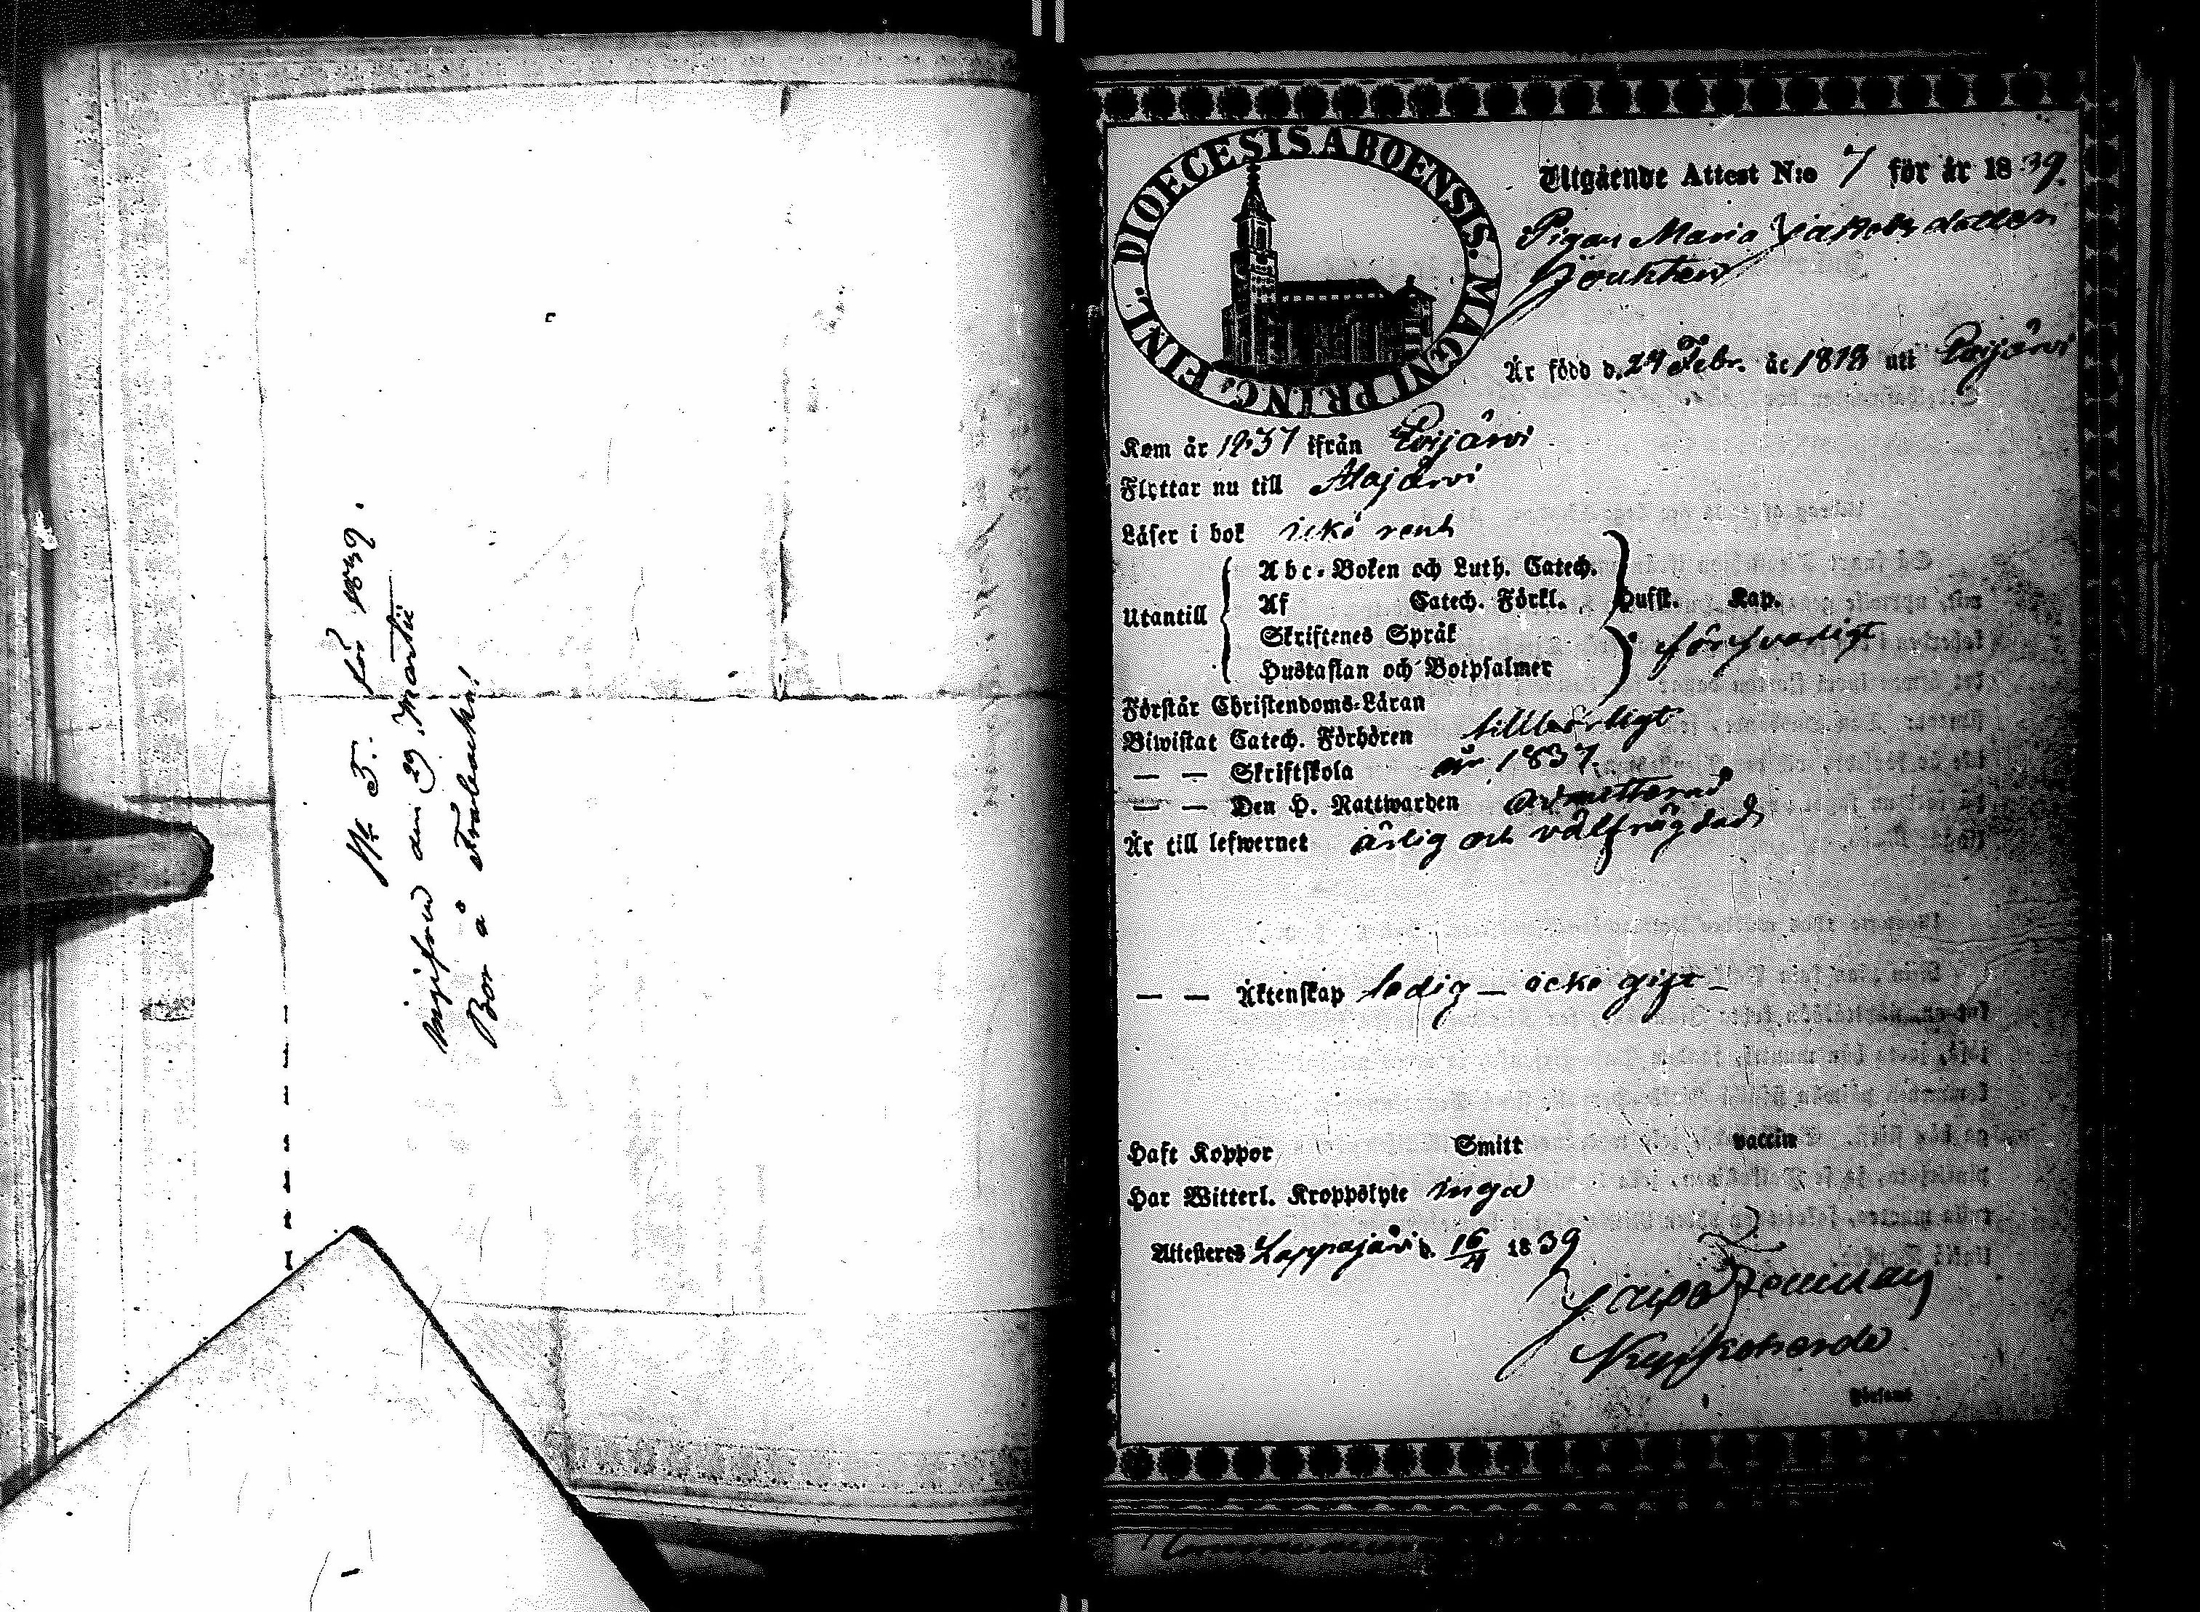 N:o 5. för 1839.
ingifvid den 29 Martii
Bor å Fräbacka!
DIOECESIS ABOENSIS. MAGNI PRINC. FINL.
Utgående Attest N:o 7 för år 1839.
Pigan Maria Jakobsdotter
Är född d. 24 Febr. år 1818 uti Evijärvi
Kom år 1837 ifrån Evijärvi
Flyttar nu till Alajärvi
Läser i bok icke rent
Utantill
Abc-Boken och Luth. Catech.
Af Catech. Förkl. Husst. Kap.
Skriftenes Språk försvarligt
Hustaflan och Botpsalmer
Förstår Christendoms-Läran
Biwistat Catech. Förhören tillbörligt
— — Skriftskola år 1837
— — Den H. Nattwarden admitterad
Är till lefwernet ärlig och välfrägdad
— — Äktenskap ledig — icke gift —
Haft Koppor Smitt vaccin
Har Witterl. Kroppslyte inga
Attesteres Lappajärvi d. 16/4 1839